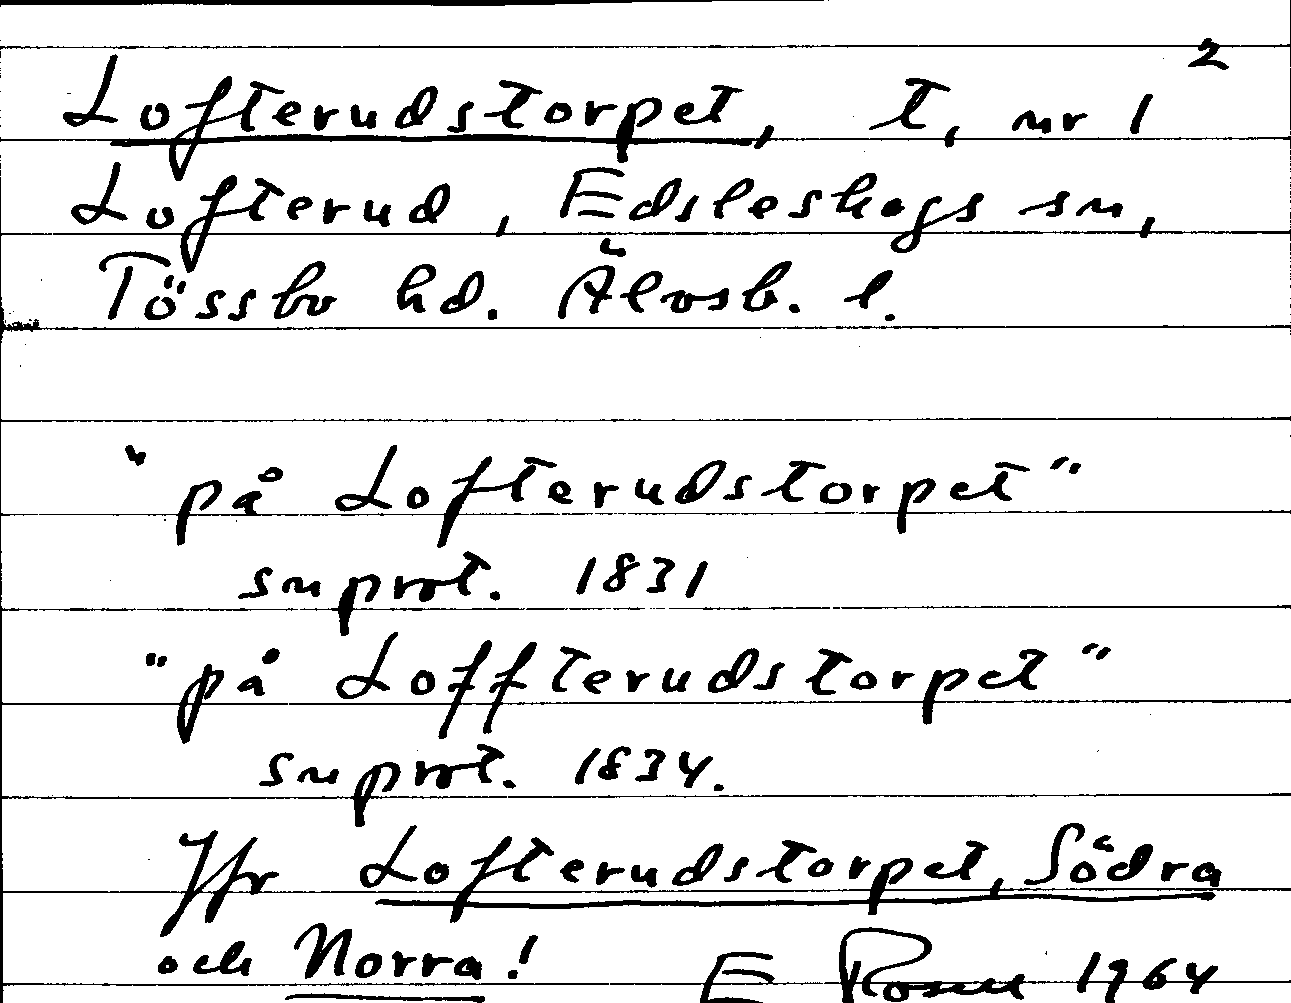 2
Lofterudstorpet, t, nr 1
Lofterud, Edsleskogs sn,
Tössbo hd. Älvsb. l.
"på Lofterudstorpet"
snprot. 1831
"på Loffterudstorpet"
snprot. 1834.
Jfr Lofterudstorpet, Södra
och Norra!
E Rosell 1964